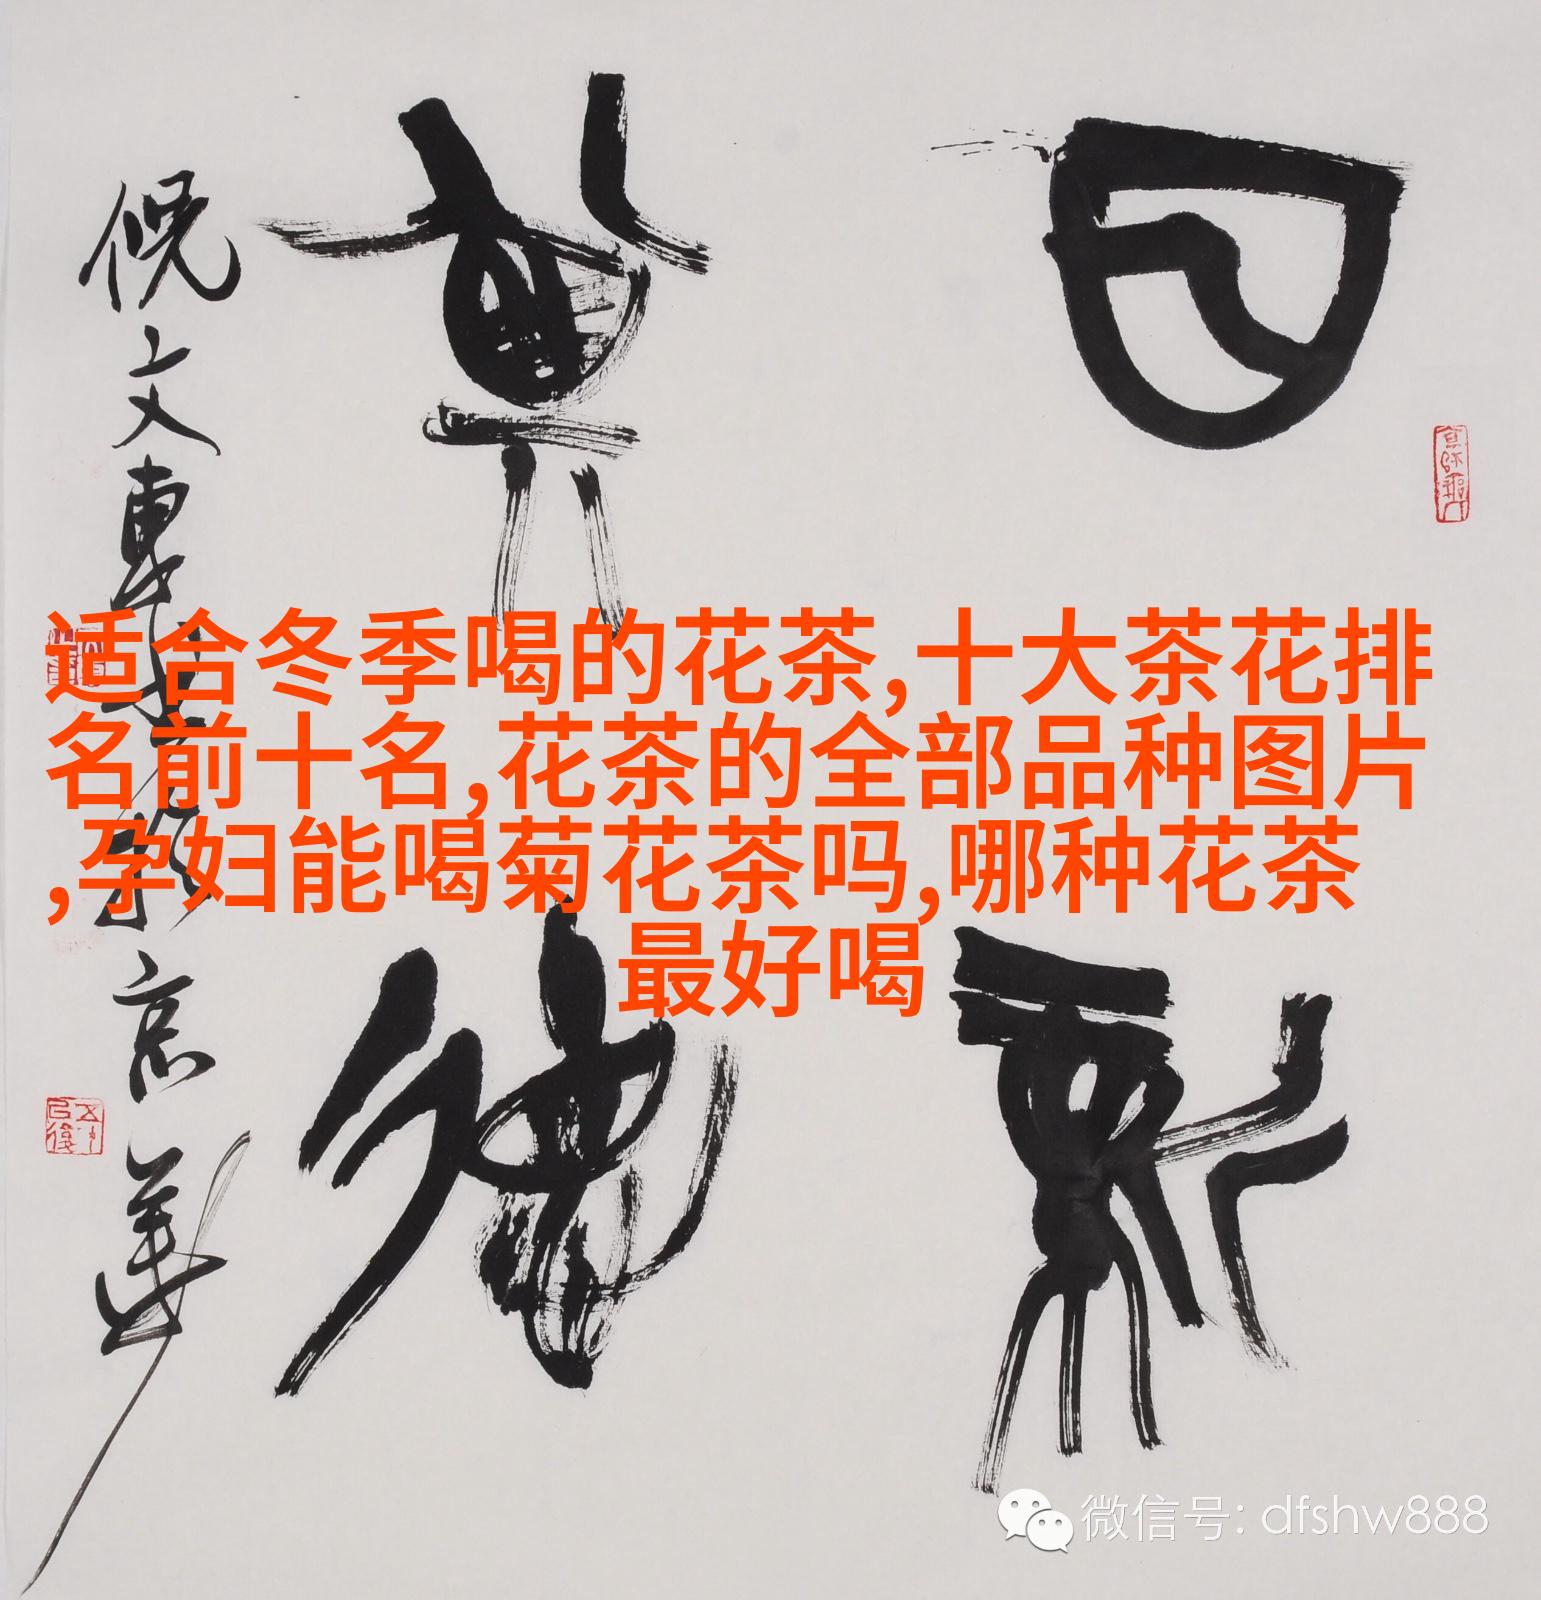 适合冬季喝的花茶,十大茶花排
名前十名,花茶的全部品种图片
,孕妇能喝菊花茶吗,哪种花茶
最好喝
日新
其德
倪文東
京華
微信号: dfshw888